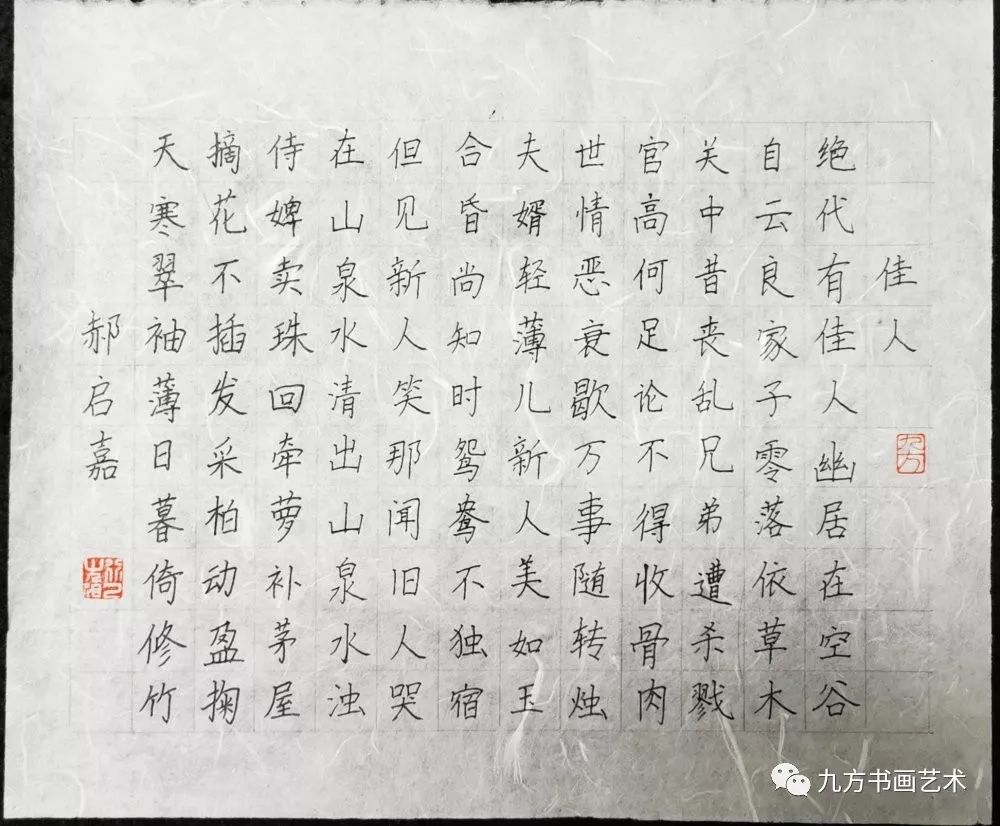 佳人
绝代有佳人幽居在空谷
自云良家子零落依草木
关中昔丧乱兄弟遭杀戮
官高何足论不得收骨肉
世情恶衰歇万事随转烛
夫婿轻薄儿新人美如玉
合昏尚知时鸳鸯不独宿
但见新人笑那闻旧人哭
在山泉水清出山泉水浊
侍婢卖珠回牵萝补茅屋
摘花不插发采柏动盈掬
天寒翠袖薄日暮倚修竹
郝启嘉
九方
九方书画艺术